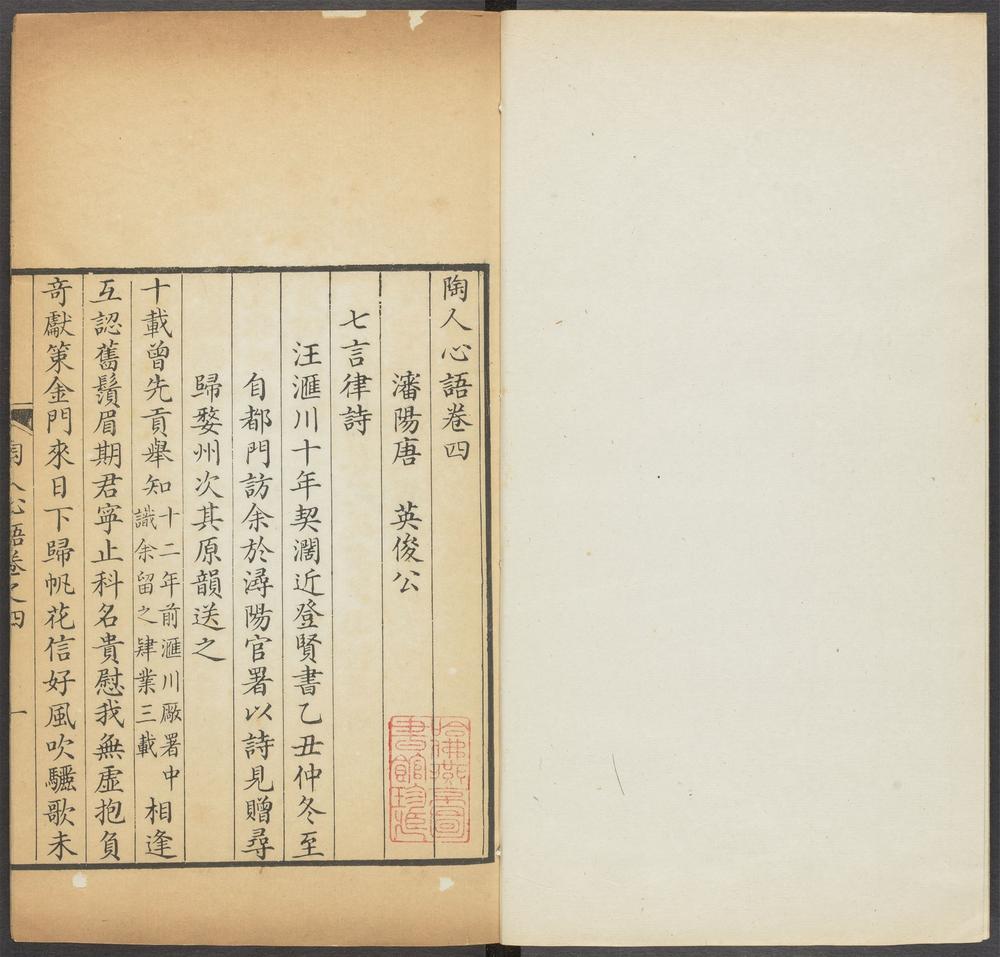 陶人心語卷四
瀋陽唐　英俊公
七言律詩
汪滙川十年契濶近登賢書乙丑仲冬至
自都門訪余於潯陽官署以詩見贈尋
歸婺州次其原韻送之
十載曾先貢舉知十二年前滙川厰署中識余留之肄業三載相逢
互認舊鬚眉期君寧止科名貴慰我無虛抱負
竒獻策金門來日下歸帆花信好風吹驪歌未
陶人心語卷之四　一
哈佛燕京圖書館珍藏